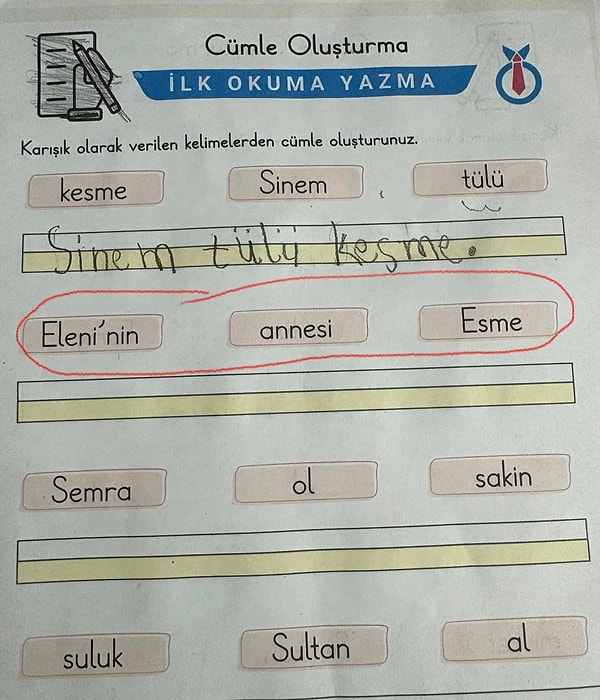 Cümle Oluşturma
İLK OKUMA YAZMA
Karışık olarak verilen kelimelerden cümle oluşturunuz.
kesme Sinem tülü
Sinem tülü keşme.
Eleni'nin annesi Esme
Semra ol sakin
suluk Sultan al